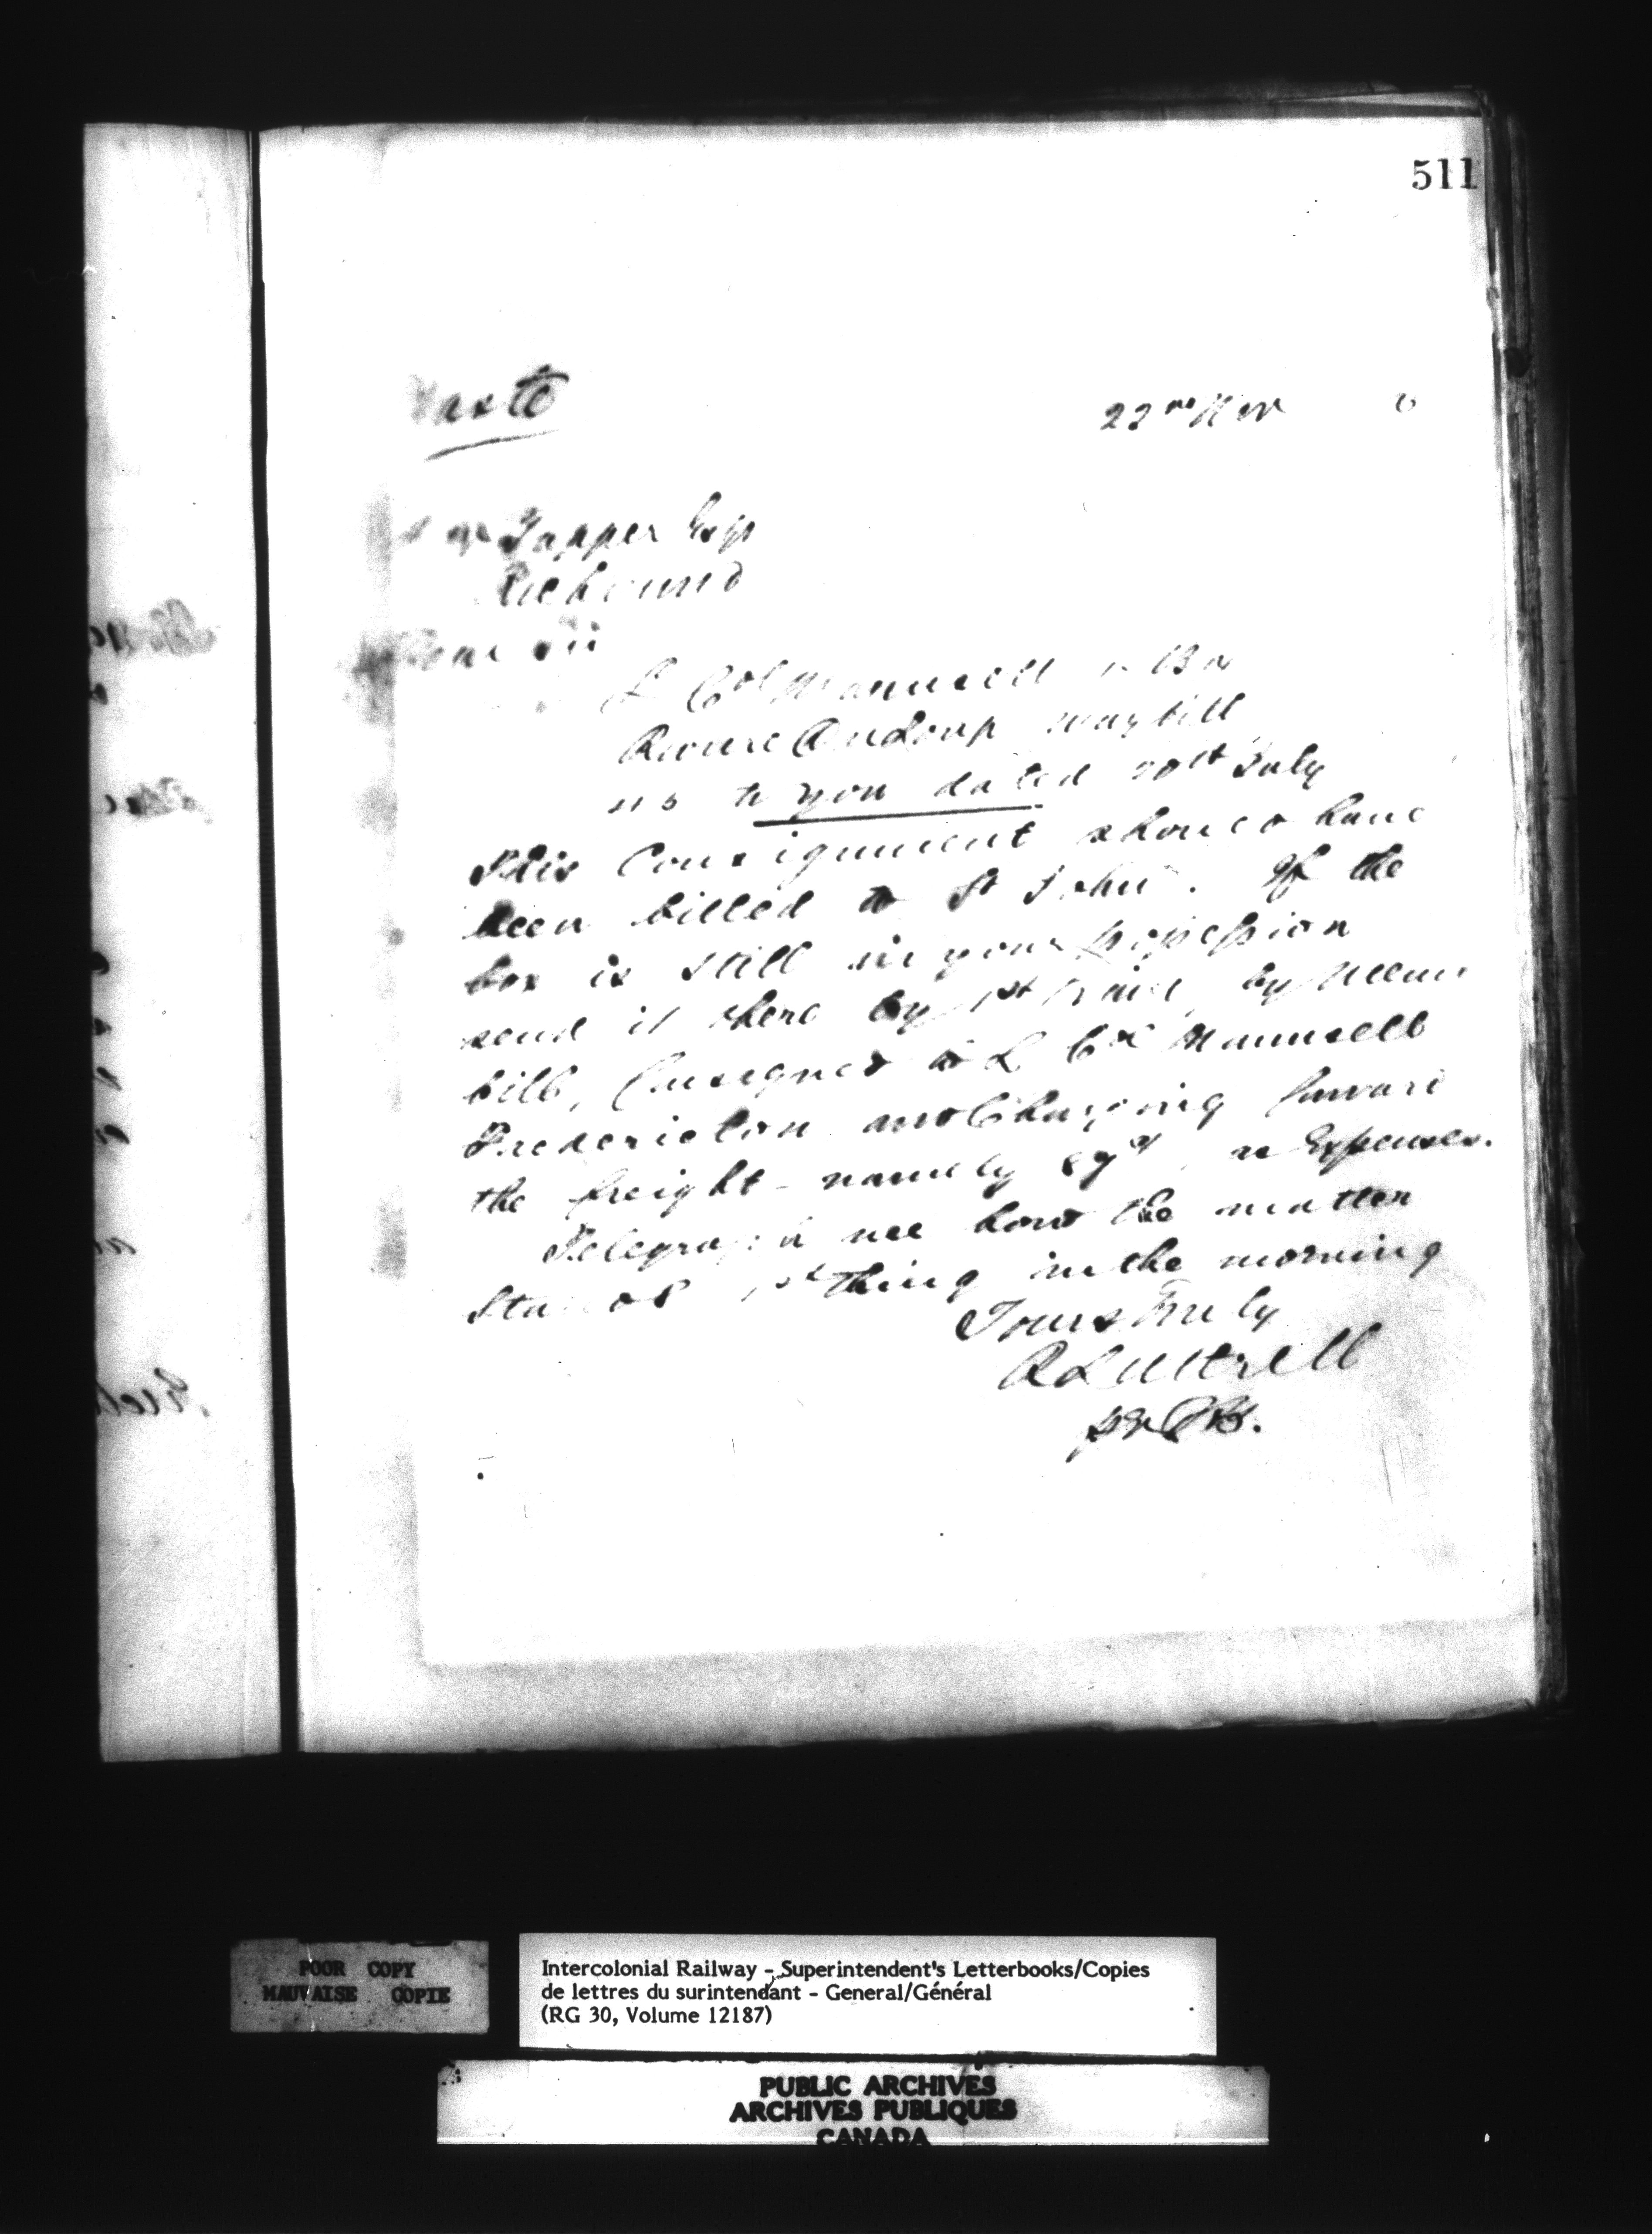 511
22nd Nov
Tupper Esqr
Richmond
Dear Sir
L Col Maunsell 1 Box
Riviere Du Loup way bill
to you dated 20th July
This Consignment should have
been billed to St John. If the
box is still in your possession
send it there by 1st train, by
bill, Consigned to L Col Maunsell
Fredericton and Charging forward
the freight - namely 87c as Expenses.
Telegraph me how the matter
stands 1st thing in the morning
Yours truly
R Luttrell
pr
POOR COPY
MAUVAISE COPIE
Intercolonial Railway - Superintendent's Letterbooks/Copies
de lettres du surintendant - General/Général
(RG 30, Volume 12187)
PUBLIC ARCHIVES
ARCHIVES PUBLIQUES
CANADA